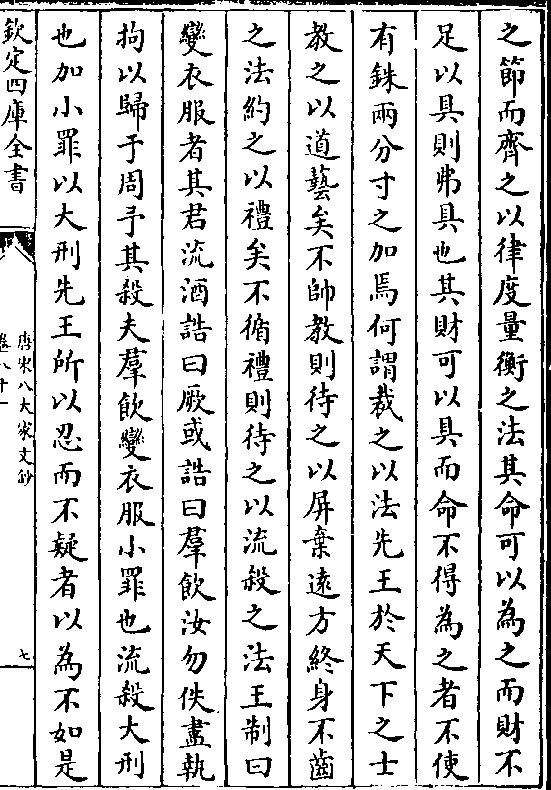 之節而齊之以律度量衡之法其命可以為之而財不
足以具則弗具也其財可以具而命不得為之者不使
有銖兩分寸之加焉何謂裁之以法先王於天下之士
教之以道藝矣不帥教則待之以屏棄遠方終身不齒
之法約之以禮矣不循禮則待之以流殺之法王制曰
變衣服者其君流酒誥曰厥或誥曰羣飲汝勿佚盡執
拘以歸于周予其殺夫羣飲變衣服小罪也流殺大刑
也加小罪以大刑先王所以忍而不疑者以為不如是
欽定四庫全書
唐宋八大家文鈔
卷八十
七